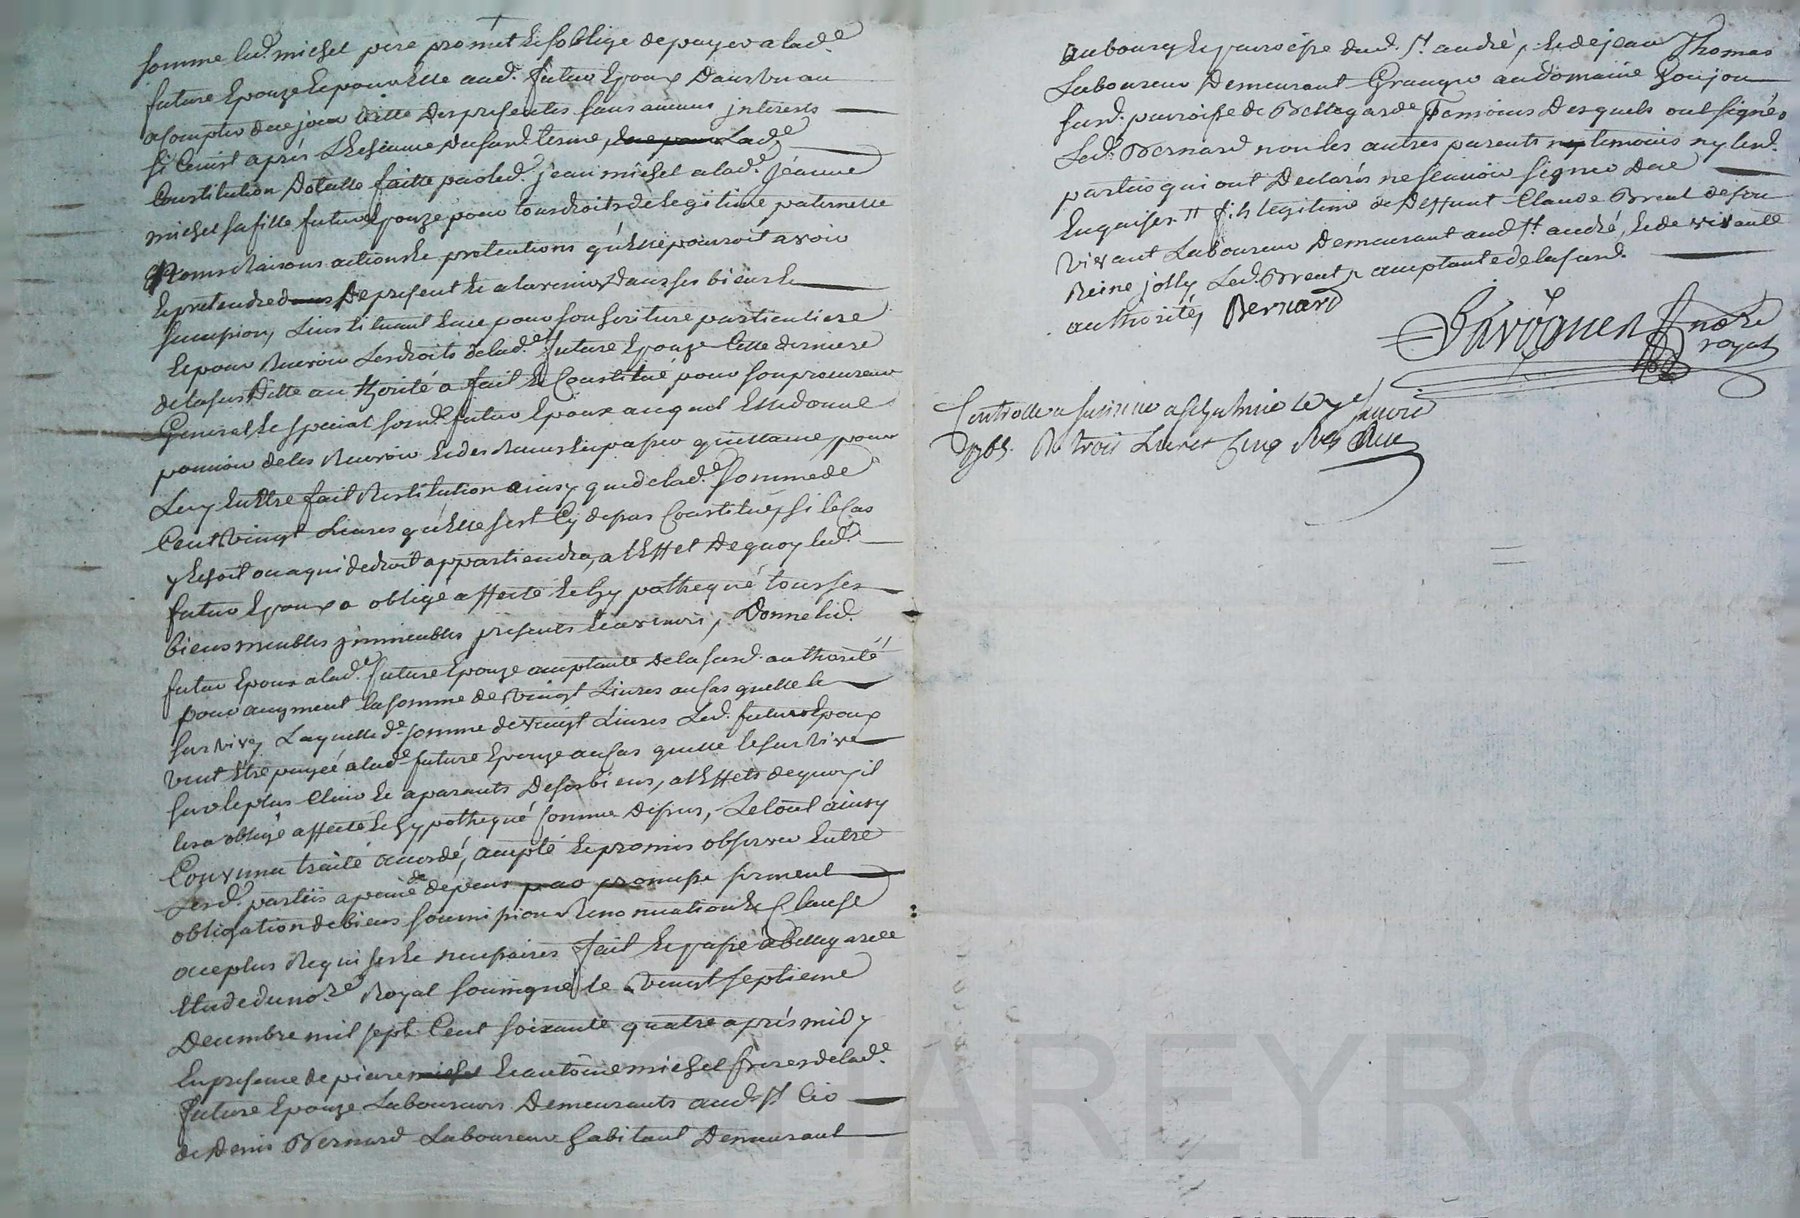 somme led. michel pere promet et soblige de payer a lad.e
future Epouze et pour elle aud. futur Epoux dans un an
a compter de ce jour datte des presentes sans aucuns interests
si ce n'est après l'esceance dususd. terme, que pour lad.e
Constitution dotalle faitte par led. jean michel a lad.e jéanne
michel sa fille future Epouze pour tous droits de legitime paternelle
Noms Raisons actions et pretentions qu'elle pouroit avoir
et pretendre de present et a l'avenir dans ses biens et
sucession, linstituant en ce pour son heritiere particuliere
et pour Recevoir les droits delad.e future Epouze Cette derniere
de la susditte authorité a fait et Constitué pour son procureur
General et special sond. futur Epoux auquel Elle donne
pouvoir de les Recevoir et des Recus en passer quittance, pour
luy en Etre fait Restitution ainsy que delad.e somme de
Cent vingt Livres qu'elle s'est Cy dessus Constituée, si le Cas
y Eschoit ou a qui de droit appartiendra, a l'Effet de quoy led.
futur Epoux a obligé affecté et hypothequé tous ses
biens meubles immeubles presents et avenirs, Donne led.
futur Epoux a lad.e future Epouze acceptante de la susd. authorité
pour augment la somme de vingt Livres au Cas quelle le
survive, Laquelle d.e somme de vingt Livres Led. futur Epoux
veut Etre payée a lad.e future Epouze au Cas quelle le survive
sur le plus Clair et aparants de ses biens, a l'Effets de quoy il
les a obligé affecté et hypothequé Comme dessus, Le tout ainsy
Convenu traité accordé, accepté et promis observer Entre
Lesd. partiës a peine de depens par promesse serment
obligation de biens soumission Renonciation et Clause
a ce plus Requises et necessaires fait et passé a Bellegarde
Etude du no.re Royal soussigné le vingt septieme
Decembre mil sept Cent soixante quatre après midy
En presence de pierre michel et antoine michel freres delad.e
future Epouze Laboureurs Demeurants aud. St
de Denis Bernard Laboureur habitant Demeurant
au bourg et paroisse dud. St. andré, et de jean Thomas
Laboureur Demeurant Granger au domaine Goujon
susd. paroisse de Bellegarde Temoins Desquels ont signés
Led. Bernard non les autres parents ny temoins ny lesd.
parties qui ont Declarés ne sçavoir signer de ce
Enquis fils legitime de Deffunt Claude Breat de son
vivant Laboureur Demeurant aud. St. andré, et de vivante
Reine jolly Led. Breat acceptante de la susd.
authorité, Bernard
no.re
royal
Controllé a le
1765. R. trois Livres Cinq sols
CHAREYRON